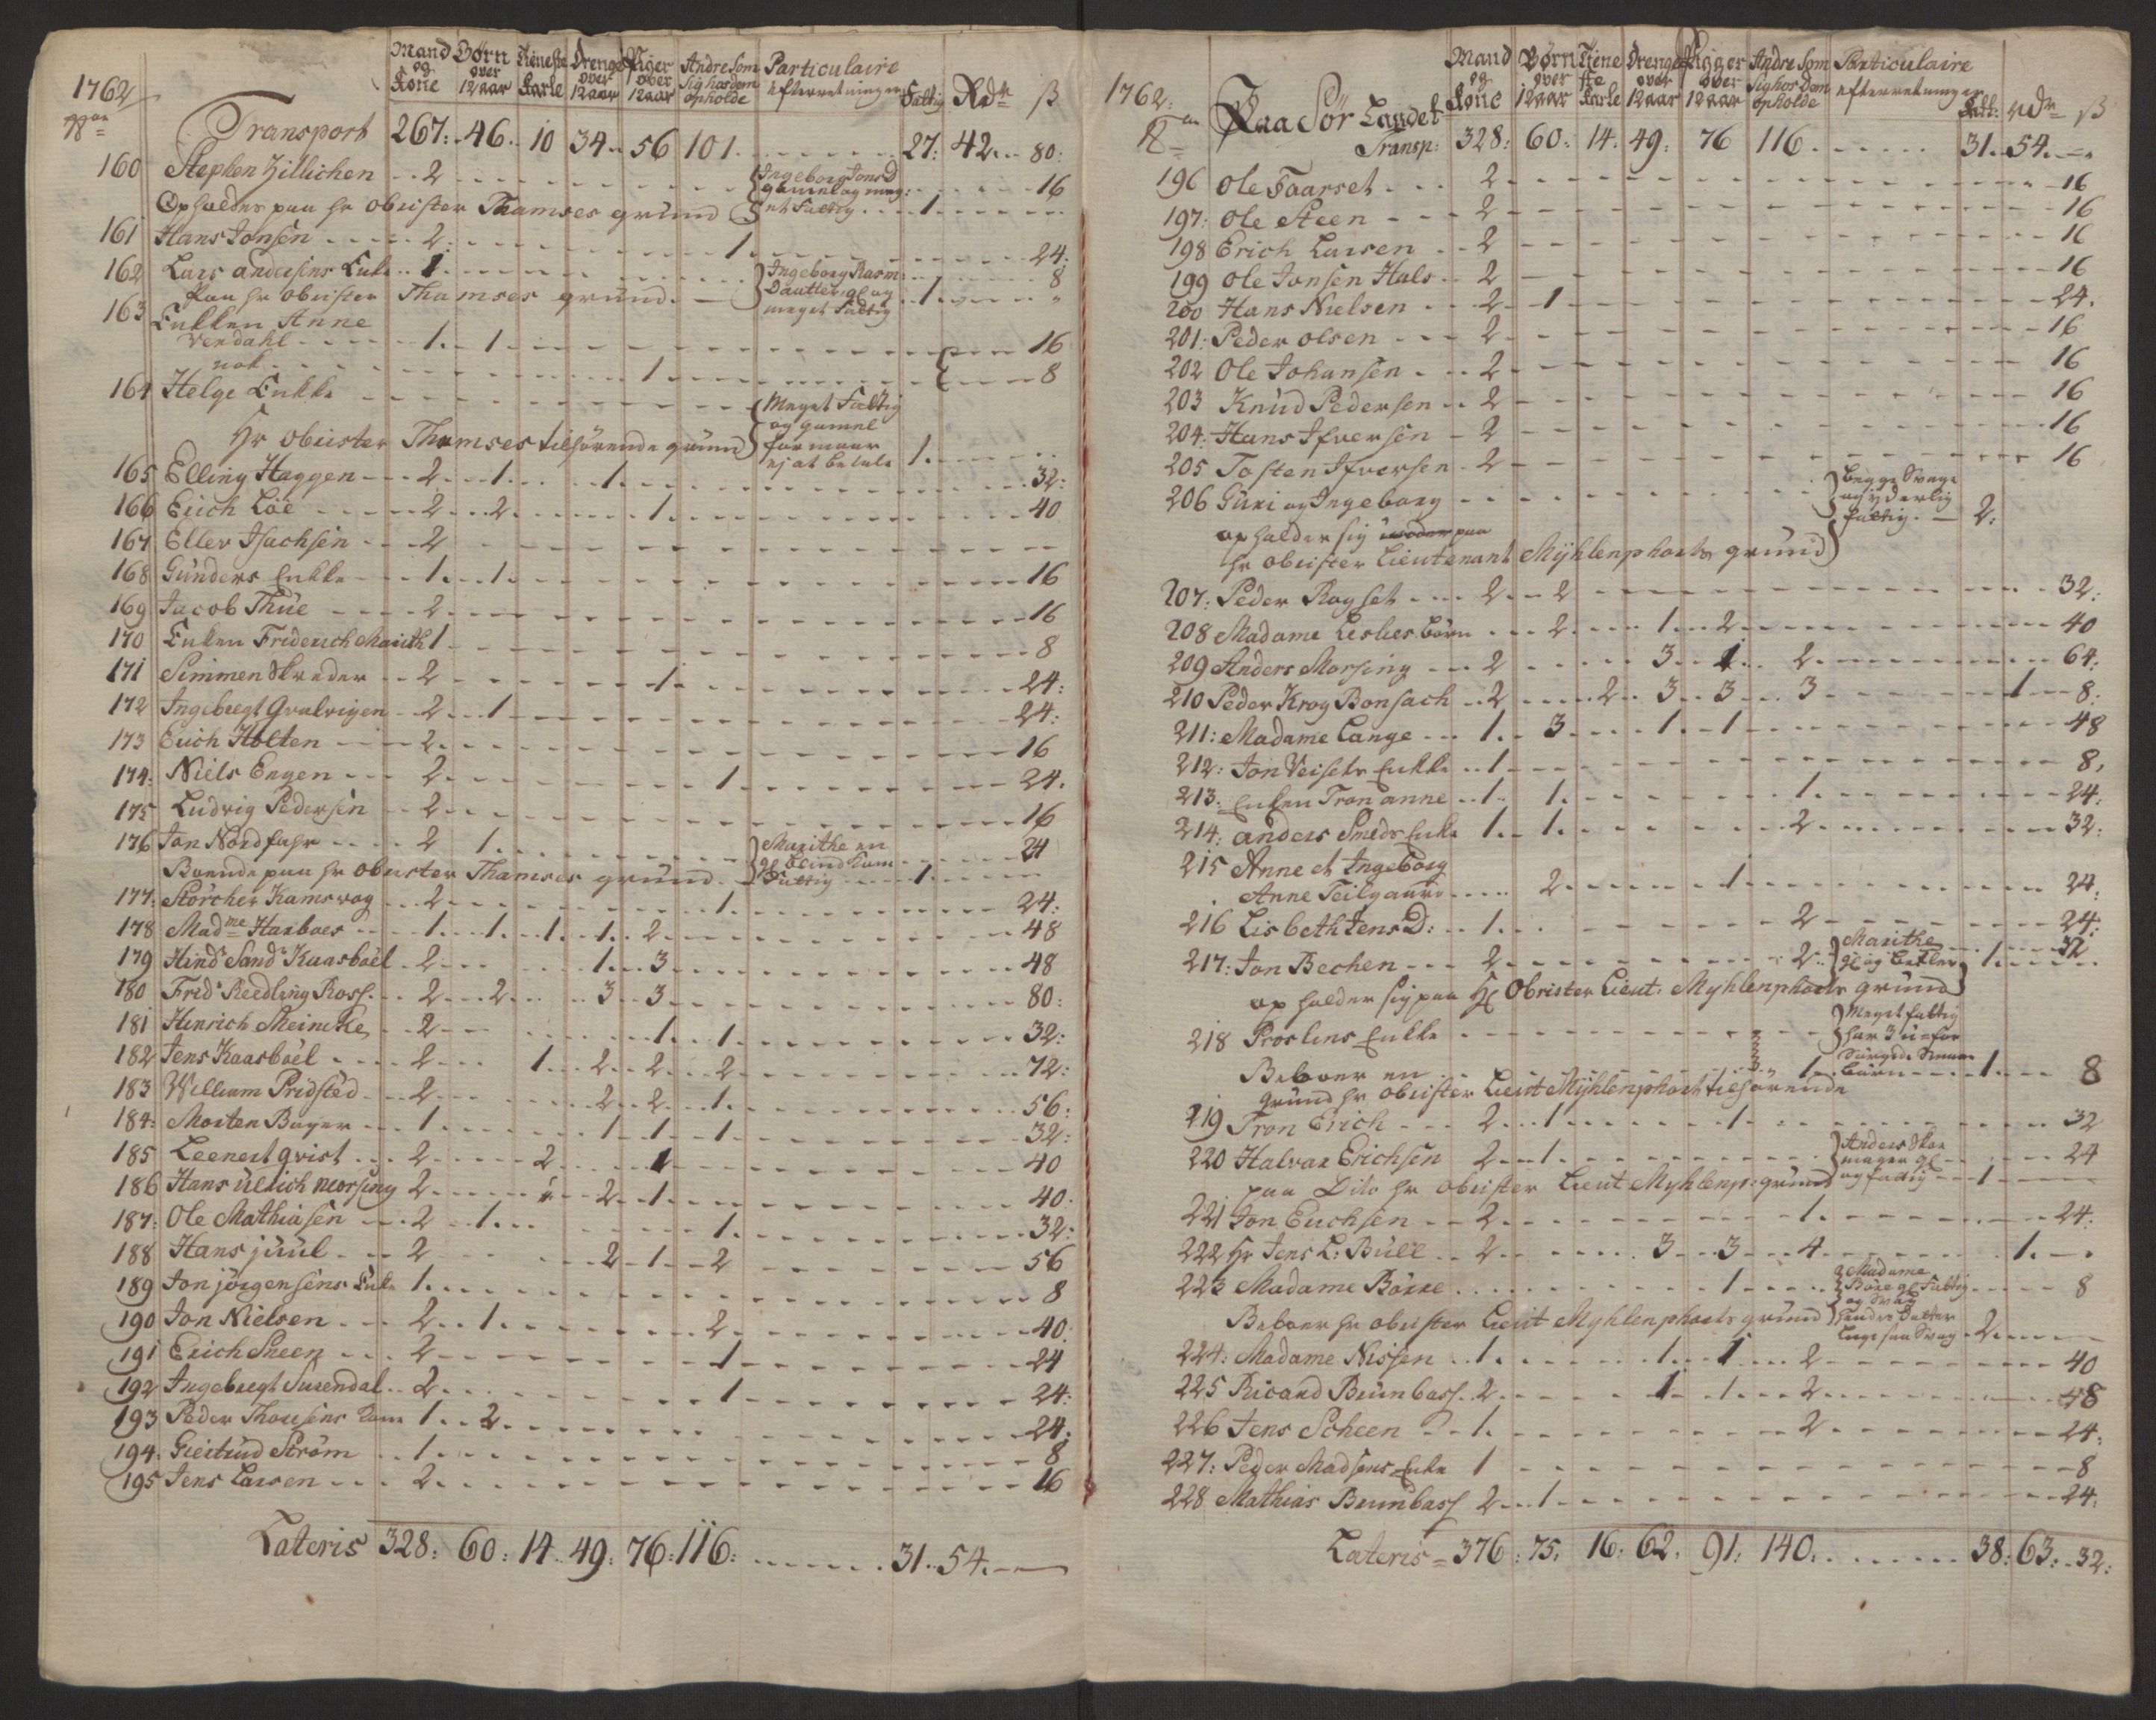 1762
Mand og Kone Børn over 12 aar Tieneste Karle Drenge over 12 aar Piger over 12 aar Andre som sig hos dem opholde Particulaire efterretninger fattig Rdr ß
Transport 267: 46. 10 34. 56 101. 27: 42. 80:
160 Stephen Zillichen 2 { Ingeborg Jons D gammel og meg: 16
Opholdes paa hr obrister Thamses grund et fattig 1
161 Hans Jonsen 2. 1. 24.
162 Lars andersens Enke 1 } Ingeborg Rasm: 8
Paa hr obrister Thamses grund. Daatter, gl og meget fattig 1.
163 Enkken Anne
Vendahl 1. 1. 16
nok 1 8
164 Helge Enkke { Meget Fattig
og gamel
Hr obrister Thamses tilhørende grund formaar
ej at betale 1.
165 Elling Haggen 2. 1. 1. 32:
166 Erich Löe 2. 2. 1. 40
167 Eller Isachsen 2
168 Gunders Enkke 1. 1. 16
169 Jacob Thue 2 16
170 Enken Friderich Marith 1 8
171 Simmen Skreder 2 1. 24:
172 Ingebregt Gralvigen 2. 1 24:
173 Erich Holten 2. 16
174. Niels Engen 2. 1. 24.
175 Ludvig Pedersen 2. 16
176 Jon Nordfuhr 2 1. } Marithe en 24
Boende paa hr obrister Thamses grund. gl blind kone
Fattig 1.
177. Störcher Kamsvog 2. 1. 24:
178 Madme Harboes 1. 1. 1. 1. 2. 48
179 Hind Sand Kaasböel 2. 1. 3. 48
180 Frid: Reedling Ross. 2. 2. 3 3. 80:
181 Hinrich Meincke 2 1. 1. 32:
182 Jens Kaasböel 2 1. 2. 2. 2. 72:
183 William Pridsted 2. 2. 2. 1. 56:
184: Morten Bayer 1. 1. 1. 1. 32:
185 Leenert Qvist 2 2 1 40
186 Hans Ulrich Morsing 2 2. 1. 40
187: Ole Mathiasen 2 1. 1. 32:
188 Hans juul 2 2. 1. 2 56
189 Jon jörgensens Enke 1. 8
190 Jon Nielsen 2. 1. 2. 40:
191 Erich Sneen 2 1 24
192 Ingebregt Surendal 2. 1 24:
193 Peder Thoresens kone 1. 2. 24:
194. Giertrud Ström 1. 8
195 Jens Larsen 2. 16
Lateris 328: 60: 14. 49: 76: 116: 31. 54.
1762:
Mand og Kone Børn over 12 aar Tieneste Karle Drenge over 12 aar Pigger over 12 aar Andre som sig hos dem opholde Particulaire efterretninger fatt: rdr ß
Paa Sør Landet
Transp: 328: 60: 14. 49: 76 116. 31. 54.
196 Ole Faarset 2 16
197: Ole Steen 2 16
198 Erich Larsen 2 16
199 Ole Jonsen Hals 2 16
200 Hans Nielsen 2 1 24.
201: Peder olsen 2 16
202 Ole Johansen 2 16
203 Knud Pedersen 2 16
204: Hans Ifversen 2 16
205 Tosten Ifversen 2 16
206 Guri og Ingeborg } begge Svage
og yderlig
fattig. 2:
opholder sig paa
hr obrister Lieutenant Myhlenphorts grund
207: Peder Rogset 2. 2 32:
208 Madame Leslies börn 2. 1. 2. 40
209 Anders Morsing 2 3. 1. 2. 64:
210 Peder Krog Bonsach 2 2. 3. 3. 3 1. 8:
211: Madame Lange 1. 3. 1. 1. 48
212: Jon Veisets Enkke 1 8,
213. Enken Tron anne 1. 1. 1. 24:
214: anders Smeds Enke 1. 1. 2. 32:
215 Anne et Ingeborg
Anne Teilgaard 2. 1. 24.
216 Lisbeth Jens D: 1. 2 24:
217: Jon Bechen 2. 2. } Marithe gl og betler 1. 32
opholder sig paa Hr Obrister Lieut: Myhlenphorts grund
218 Proslins Enkke } Meget fattig
har 3 u=for
Beboer en 1. sörgede smaa börn 1. 8
grund hr obrister Lieut Myhlenphort tilhörende
219 Tron Erich 2. 1. 1. 32
220 Halvar Erichsen 2. 1. } Anders Skoemager gl 24
paa Dito hr obrister Lieut Myhlenp: grund og fattig 1
221 Jon Erichsen 2. 1. 24.
222 Hr Jens L: Bull 2. 3. 3. 4. 1.
223 Madame Börre 1. } Madame
Böre gl fattig 8
og svag
Beboer hr obrister Lieut Myhlenphorts grund hendes Datter
lige saa Svag 2.
224: Madame Nissen 1. 1. 1 2 40
225 Ricard Brunbass. 2. 1. 1. 2 48
226 Jens Scheen 1. 2. 24:
227: Peder Madsens Enke 1 8
228 Mathias Brunbass 2. 1 24:
Lateris = 376: 75: 16: 62. 91: 140. 38: 63. 32: